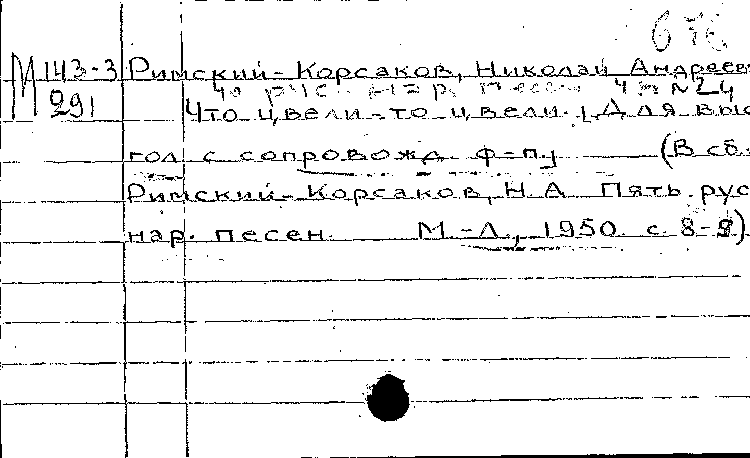 676
М 143-3 Римский-Корсаков, Николай Андреев
40 рус. нар. песен № 24
291 Что цвели-то цвели. [Для выс
гол с сопровожд. ф-п.] (В сб.
Римский-Корсаков, Н.А Пять рус
нар. песен. М.-Л., 1950. с. 8-9)